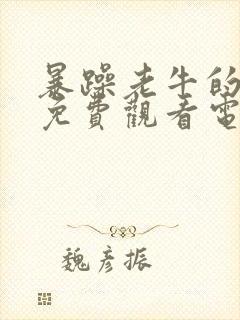 暴躁老牛的
免費觀看電
魏彥振